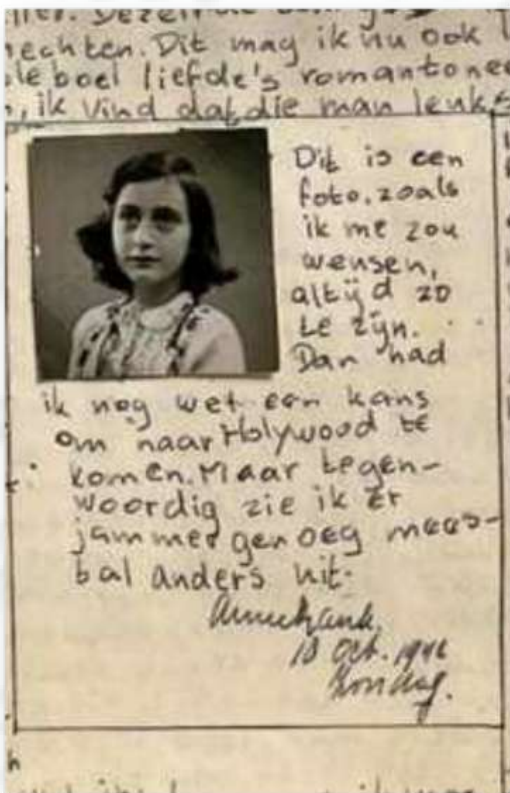 nechten. Dit mag ik nu ook
boel liefde's romantonee
, ik vind dat die man leuk
Dit is een
foto, zoals
ik me zou
wensen,
altijd zo
te zijn.
Dan had
ik nog wel een kans
om naar Holywood te
komen. Maar tegen-
woordig zie ik er
jammer genoeg mees-
tal anders uit.
Annefrank.
18 Oct. 1942
Zondag.